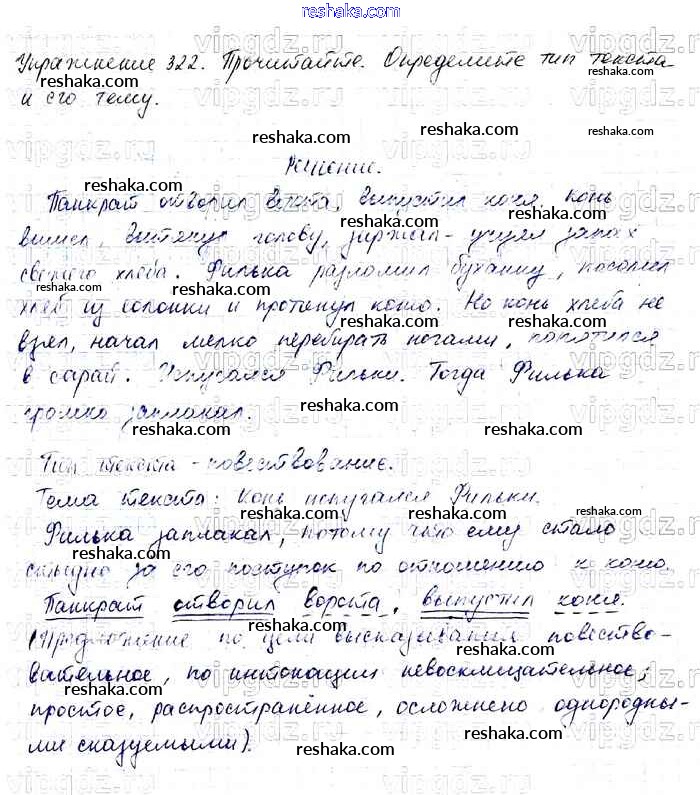 Упражнение 322. Прочитайте. Определите тип текста
и его тему.
Решение.
Панкрат отворил ворота, выпустил коня. Конь
вышел, вытянул голову, заржал - учуял запах
свежего хлеба. Филька разломил буханку, посолил
хлеб из солонки и протянул коню. Но конь хлеба не
взял, начал мелко перебирать ногами, попятился
в сарай. Испугался Фильки. Тогда Филька
громко заплакал.
Тип текста - повествование.
Тема текста: Конь испугался Фильки.
Филька заплакал, потому что ему стало
стыдно за его поступок по отношению к коню.
Панкрат отворил ворота, выпустил коня.
(Предложение по цели высказывания повество-
вательное, по интонации невосклицательное;
простое, распространённое, осложнено однородны-
ми сказуемыми).
reshaka.com
vipgdz.ru